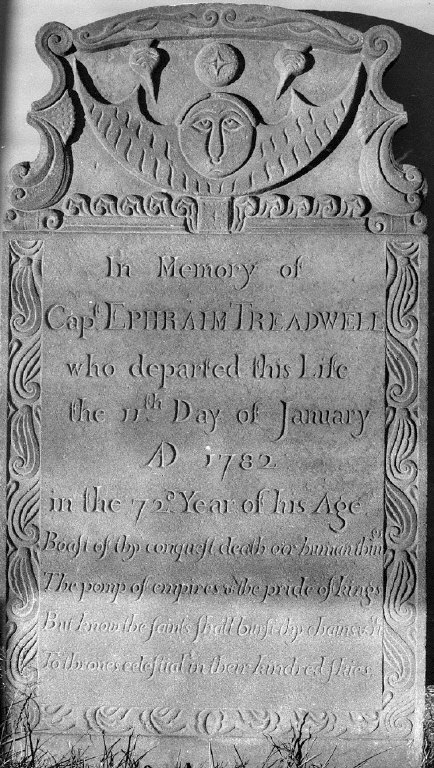 In Memory of
Capt. EPHRAIM TREADWELL
who departed this Life
the 11th Day of January
AD 1782
in the 72d Year of his Age
Boast of thy conquest death o'er human things
The pomp of empires & the pride of kings
But know the saints shall burst thy chains &
To thrones celestial in their kindred skies